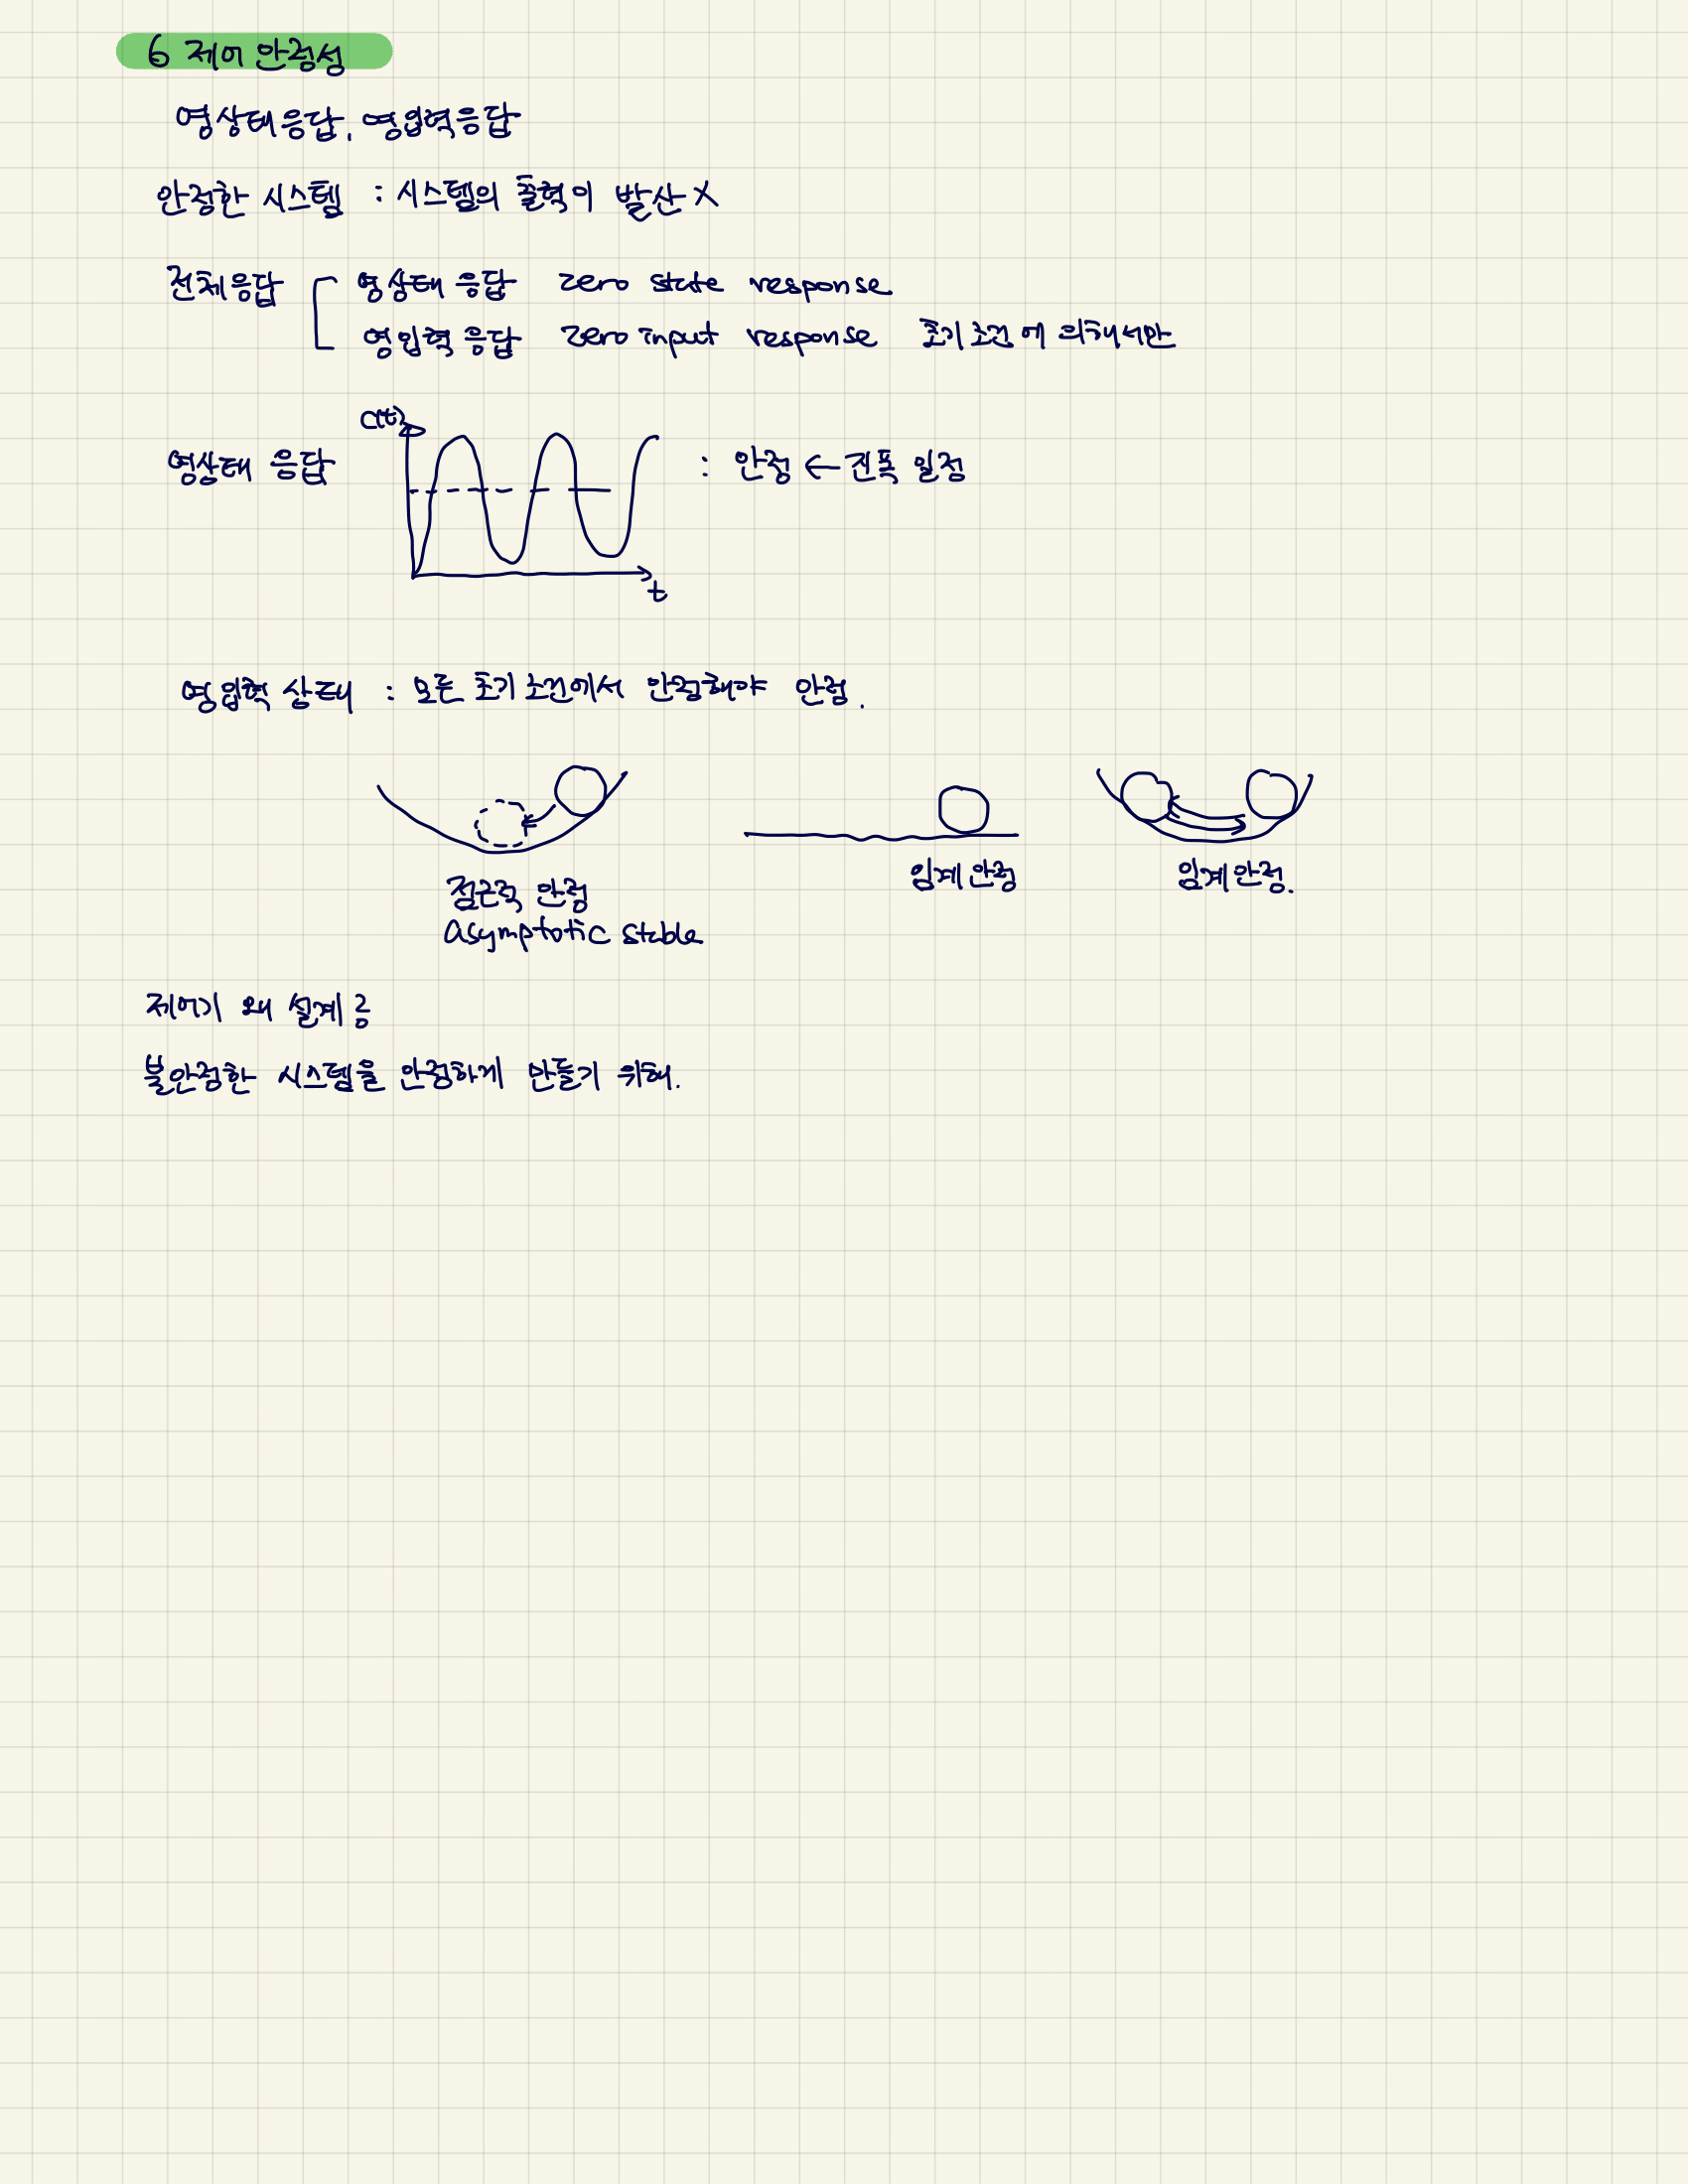 6 제어 안정성
영상태응답, 영입력응답
안정한 시스템 : 시스템의 출력이 발산 X
전체응답
영상태 응답 zero state response
영입력 응답 zero input response 초기조건에 의해서만
영상태 응답
C(t)
t
: 안정 ← 진폭 일정
영입력 상태 : 모든 초기조건에서 안정해야 안정.
점근적 안정
Asymptotic stable
임계안정
임계안정.
제어기 왜 설계
불안정한 시스템을 안정하게 만들기 위해.